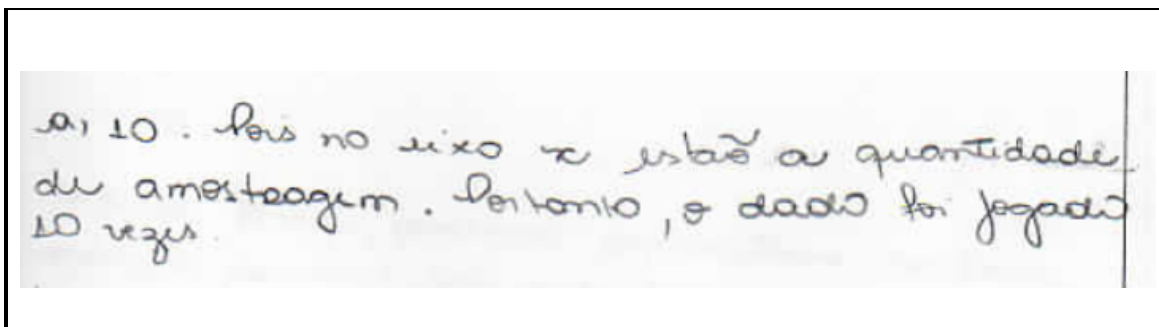 a, 10. Pois no eixo x estão a quantidade
de amostragem. Portanto, o dado foi jogado
10 vezes.